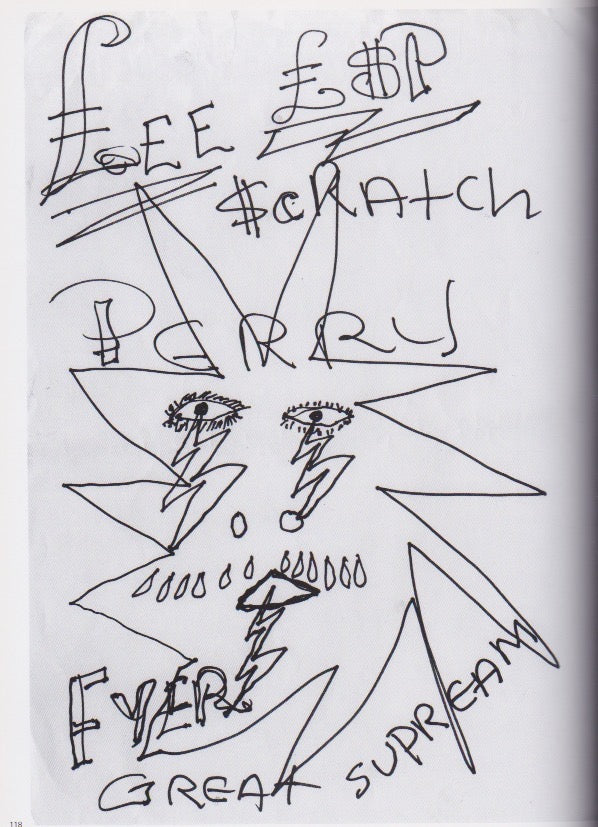 £ $P
£EE
$CRATCH
PERRY
FYER
GREAT SUPREAM
118